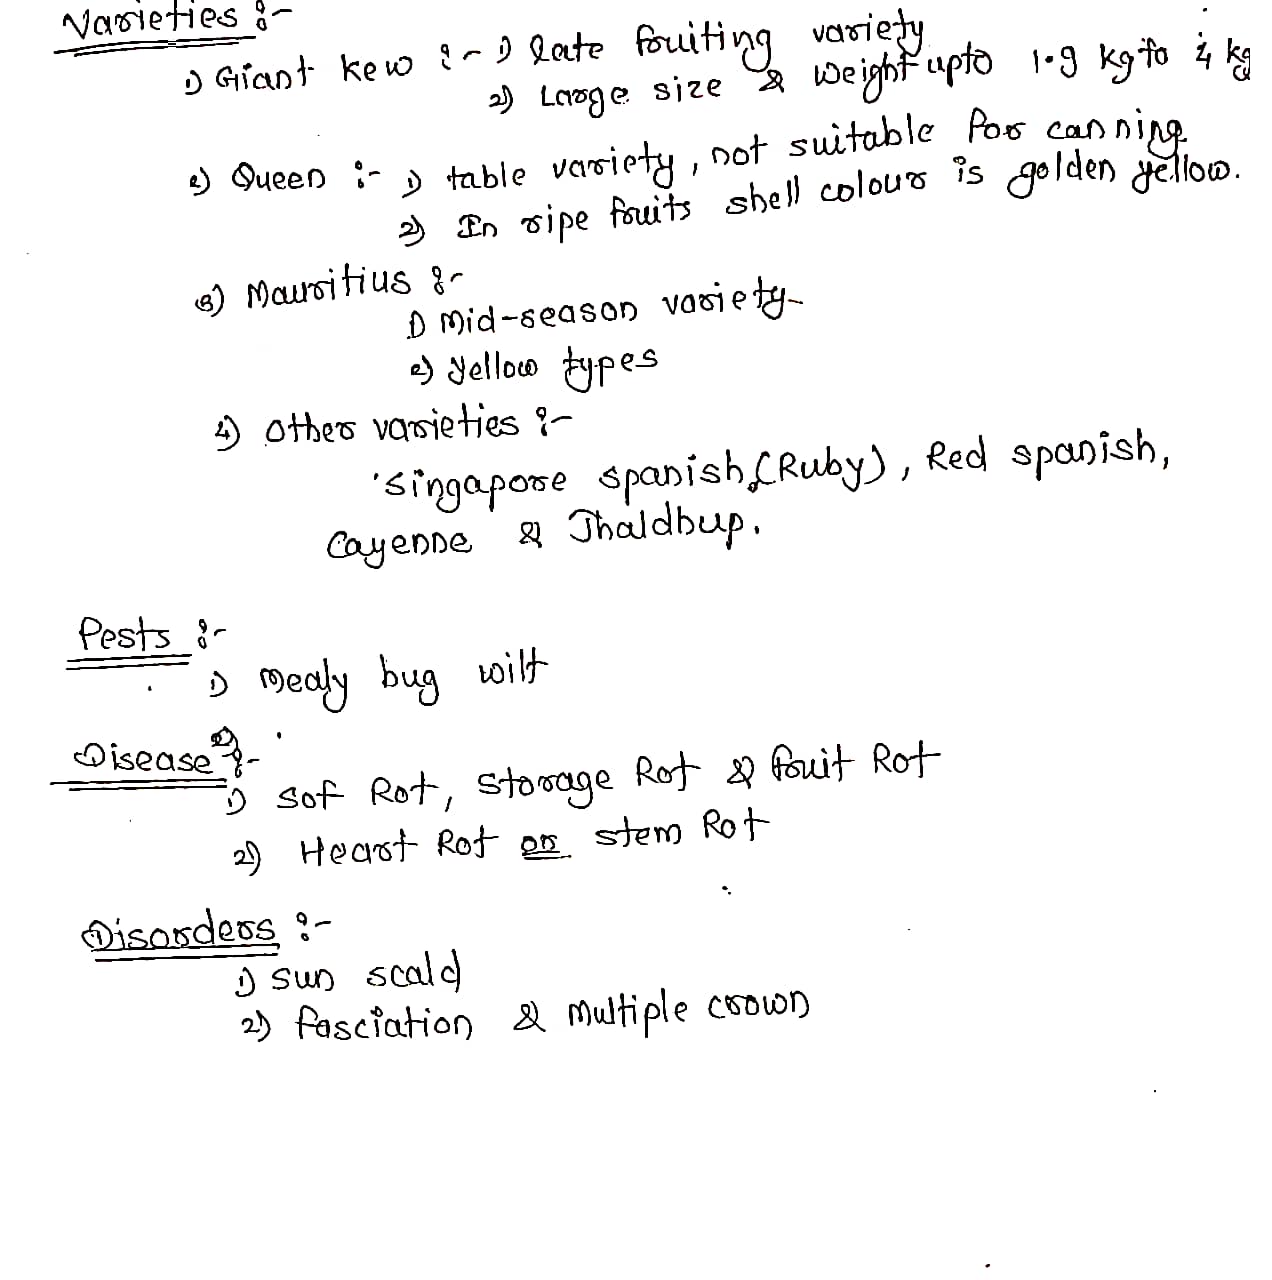 Varieties :-
1) Giant kew :- 1) late fruiting variety
2) Large size & weight upto 1.9 kg to 4 kg
2) Queen :- 1) table variety, not suitable for canning
2) In ripe fruits shell colour is golden yellow.
3) Mauritius :-
1) Mid-season variety
2) yellow types
4) other varieties :-
Singapore spanish (Ruby), Red spanish,
Cayenne & Jhaldbup.
Pests :-
1) Mealy bug wilt
Disease :-
1) Sof Rot, Storage Rot & fruit Rot
2) Heart Rot or stem Rot
Disorders :-
1) Sun scald
2) fasciation & multiple crown